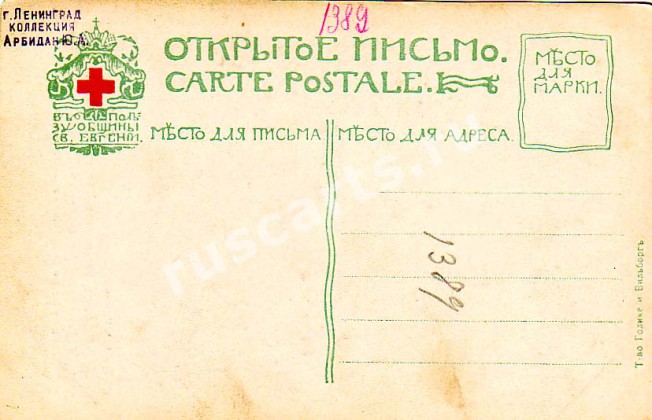 г. Ленинград
коллекция
Арбидан Ю.А.
1389
ОТКРЫТОЕ ПИСЬМО.
CARTE POSTALE.
МѢСТО
ДЛЯ
МАРКИ.
ВЪ ПОЛЬ
ЗУ ОБЩИНЫ
СВ. ЕВГЕНІИ.
МѢСТО ДЛЯ ПИСЬМА
МѢСТО ДЛЯ АДРЕСА.
1389
Т-во Голике и Вильборгъ
ruscarts.ru